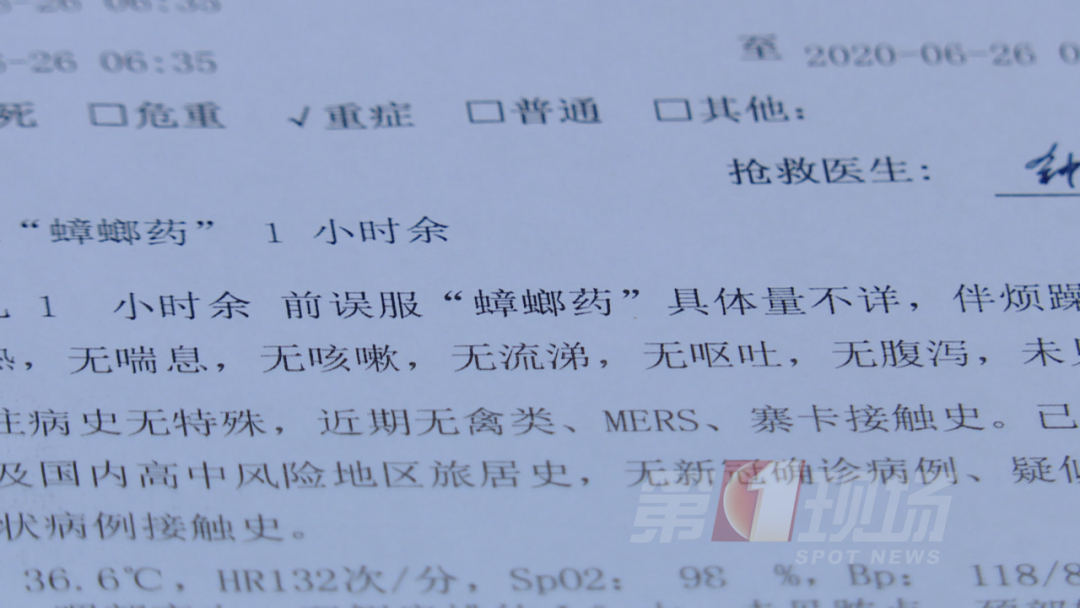 -26 06:35
-26 06:35 至 2020-06-26 0
死 □危重 √重症 □普通 □其他：
抢救医生：
“蟑螂药” 1 小时余
1 小时余 前误服“蟑螂药”具体量不详，伴烦躁
热，无喘息，无咳嗽，无流涕，无呕吐，无腹泻，未
往病史无特殊，近期无禽类、MERS、寨卡接触史。已
及国内高中风险地区旅居史，无新冠确诊病例、疑似
状病例接触史。
第1现场
SPOT NEWS
36.6℃，HR132次/分，SpO2： 98 %，Bp： 118/8